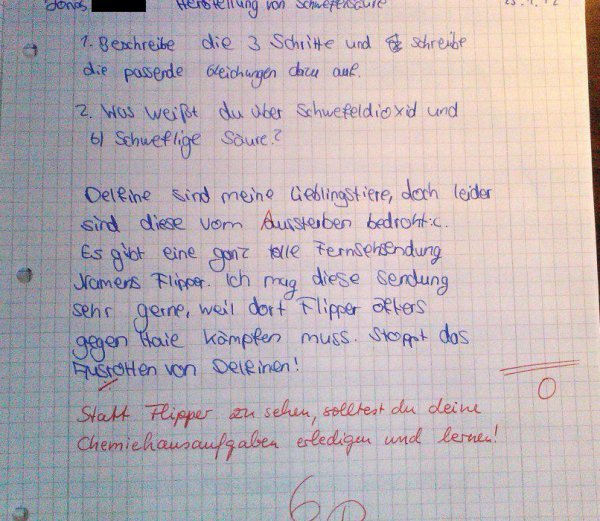 Jonas Herstellung von Schwefelsäure
1. Beschreibe die 3 Schritte und schreibe
die passende Gleichungen dazu auf.
2. Was weißt du über Schwefeldioxid und
b) Schweflige Säure?
Delfine sind meine Lieblingstiere, doch leider
sind diese vom Aussterben bedroht :c.
Es gibt eine ganz tolle Fernsehsendung
Namens Flipper. Ich mag diese Sendung
sehr gerne, weil dort Flipper öfters
gegen Haie kämpfen muss. Stoppt das
Ausrotten von Delfinen!
0
Statt Flipper zu sehen, solltest du deine
Chemiehausaufgaben erledigen und lernen!
6